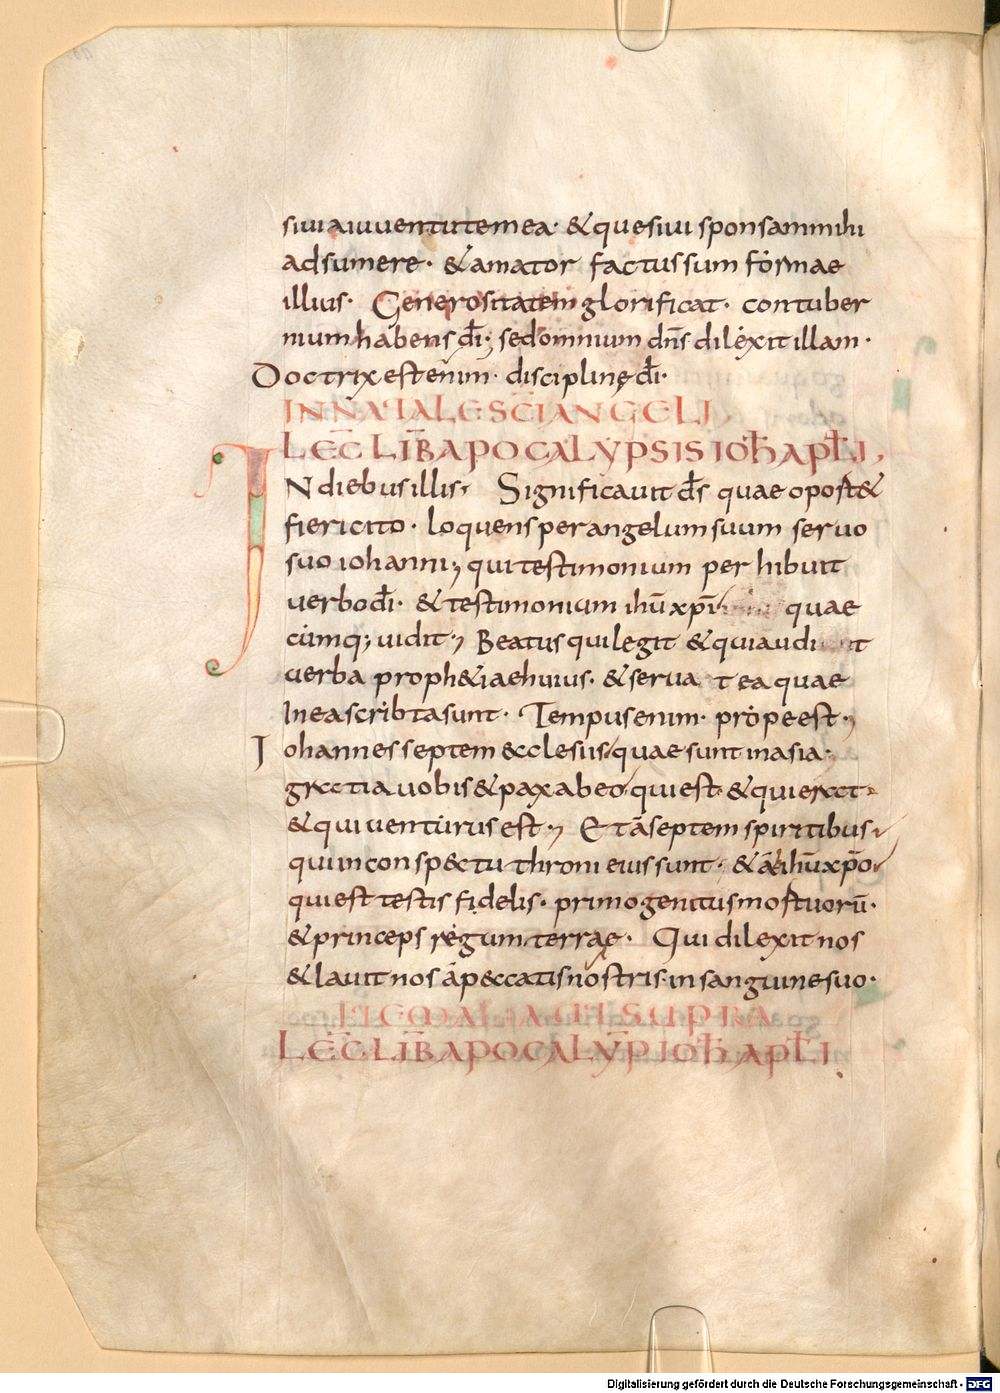 siui a iuuentute mea· & quesiui sponsam mihi
adsumere· & amator factus sum formae
illius· Generositatem glorificat· contuber
nium habens dī; sed omnium dn̄s dilexit illam·
Doctrix est enim· disciplinę dī·
IN NATALE SC̄I ANGELI
LEC̄ LIB̄ APOCALYPSIS IOH̄ APL̄I,
IN diebus illis, Significauit d̄s quae oport&
fieri cito· loquens per angelum suum seruo
suo iohanni; qui testimonium per hibuit
uerbo dī· & testimonium ihū xpī quae
cumq; uidit; Beatus qui legit & qui audi t
uerba proph&iae huius· & serua t ea quae
In ea scribta sunt· Tempus enim· prope est;
Iohannes septem ecclesiis quae sunt in asia·
gratia uobis & pax ab eo qui est· & qui erat·
& qui uenturus est; Et ā septem spiritibus·
qui in conspectu throni eius sunt· & ihū xpō·
qui est testis fidelis· primogenitus mortuorū·
& princeps regum terrae· Qui dilexit nos
& lauit nos ā peccatis nostris in sanguine suo·
SUPRA
LEC̄ LIB̄ APOCALYP IOH̄ APL̄I
Digitalisierung gefördert durch die Deutsche Forschungsgemeinschaft - DFG